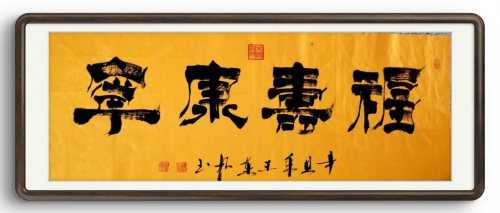 福壽康寧
辛丑年